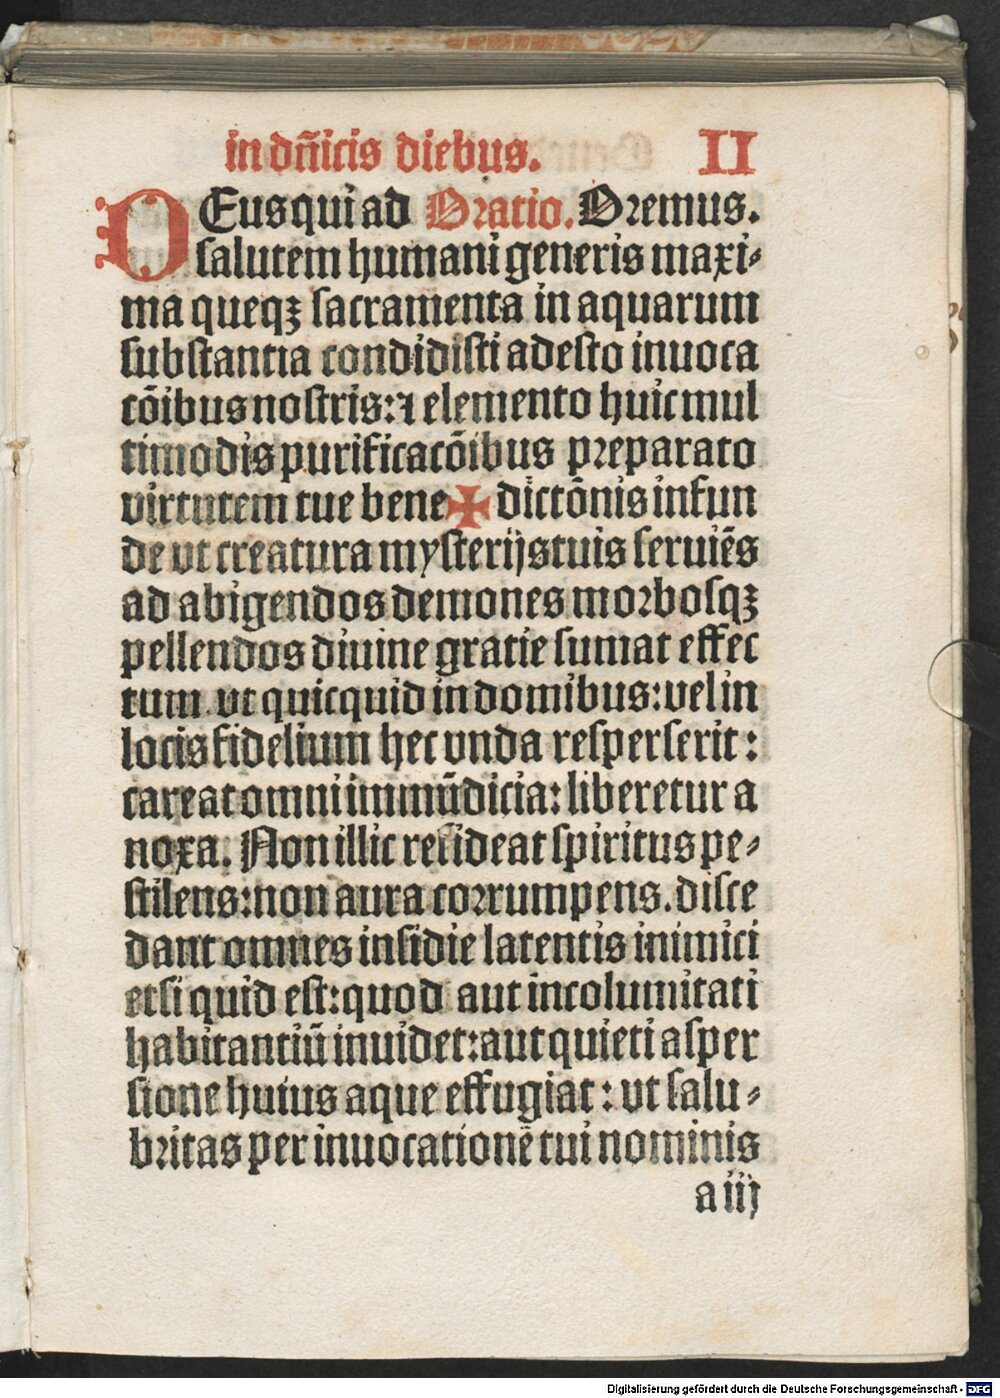 in dn̄icis diebus. II
DEus qui ad Oratio. Oremus.
ſalutem humani generis maxi⸗
ma queqꝫ ſacramenta in aquarum
ſubſtantia condidiſti adeſto inuoca
cōibus noſtris: ⁊ elemento huic mul
timodis purificacōibus preparato
virtutem tue bene ✠ dictōnis infun
de vt creatura myſterijs tuis ſeruiēs
ad abigendos demones morboſqꝫ
pellendos diuine gratie ſumat effec
tum. vt quicquid in domibus: vel in
locis fidelium hec vnda reſperſerit:
careat omni immūdicia: liberetur a
noxa. Non illic reſideat ſpiritus pe⸗
ſtilens: non aura corrumpens. diſce
dant omnes inſidie latentis inimici
et ſi quid eſt: quod aut incolumitati
habitantiū inuidet: aut quieti aſper
ſione huius aque effugiat: vt ſalu⸗
britas per inuocationē tui nominis
a iij
Digitalisierung gefördert durch die Deutsche Forschungsgemeinschaft - DFG